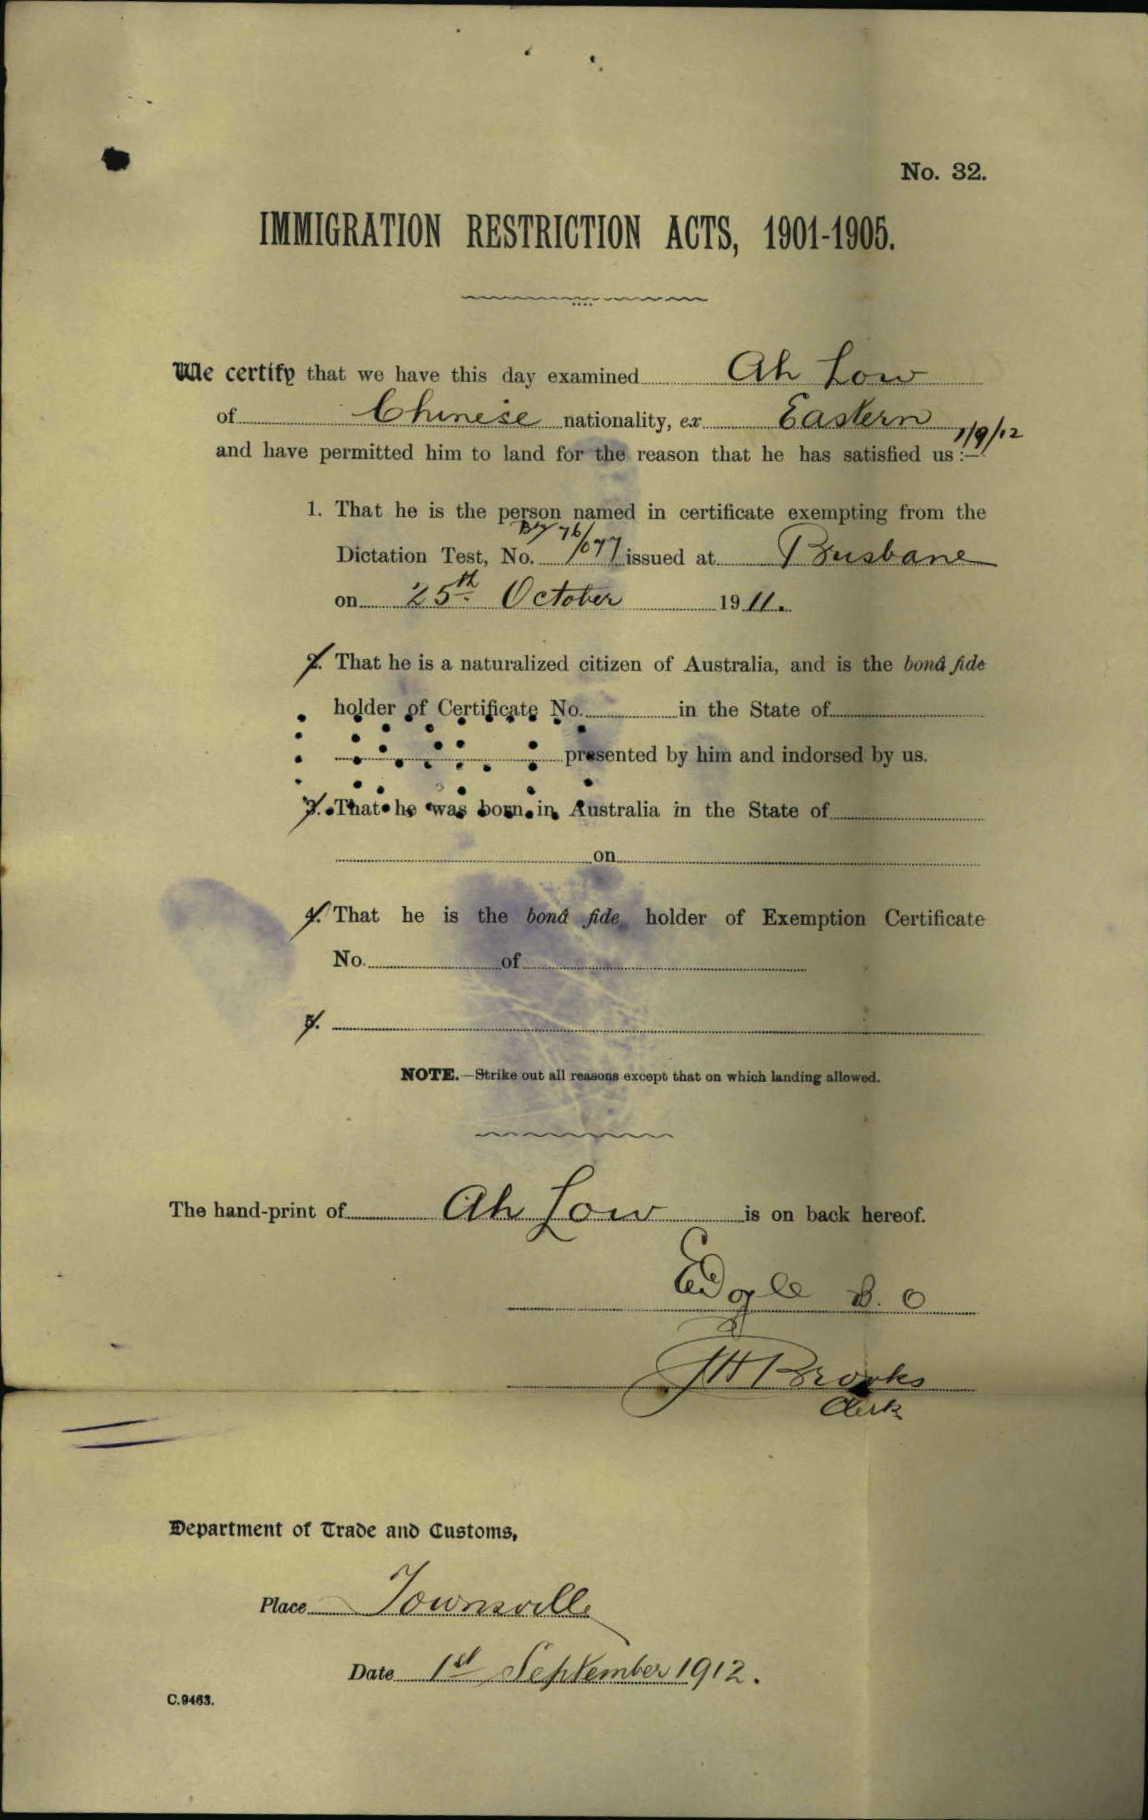 No. 32.
IMMIGRATION RESTRICTION ACTS, 1901-1905.
We certify that we have this day examined Ah Low
of Chinese nationality, ex Eastern 1/9/12
and have permitted him to land for the reason that he has satisfied us :—
1. That he is the person named in certificate exempting from the
Dictation Test, No. 76/077 issued at Brisbane
on 25th October 1911.
2. That he is a naturalized citizen of Australia, and is the bonâ fide
holder of Certificate No. in the State of
presented by him and indorsed by us.
3. That he was born in Australia in the State of
on
4. That he is the bonâ fide holder of Exemption Certificate
No. of
5.
NOTE.—Strike out all reasons except that on which landing allowed.
The hand-print of Ah Low is on back hereof.
EDoyle
JHBrooks
Clerk
Department of Trade and Customs,
Place Townsville
Date 1st September 1912.
C.9463.